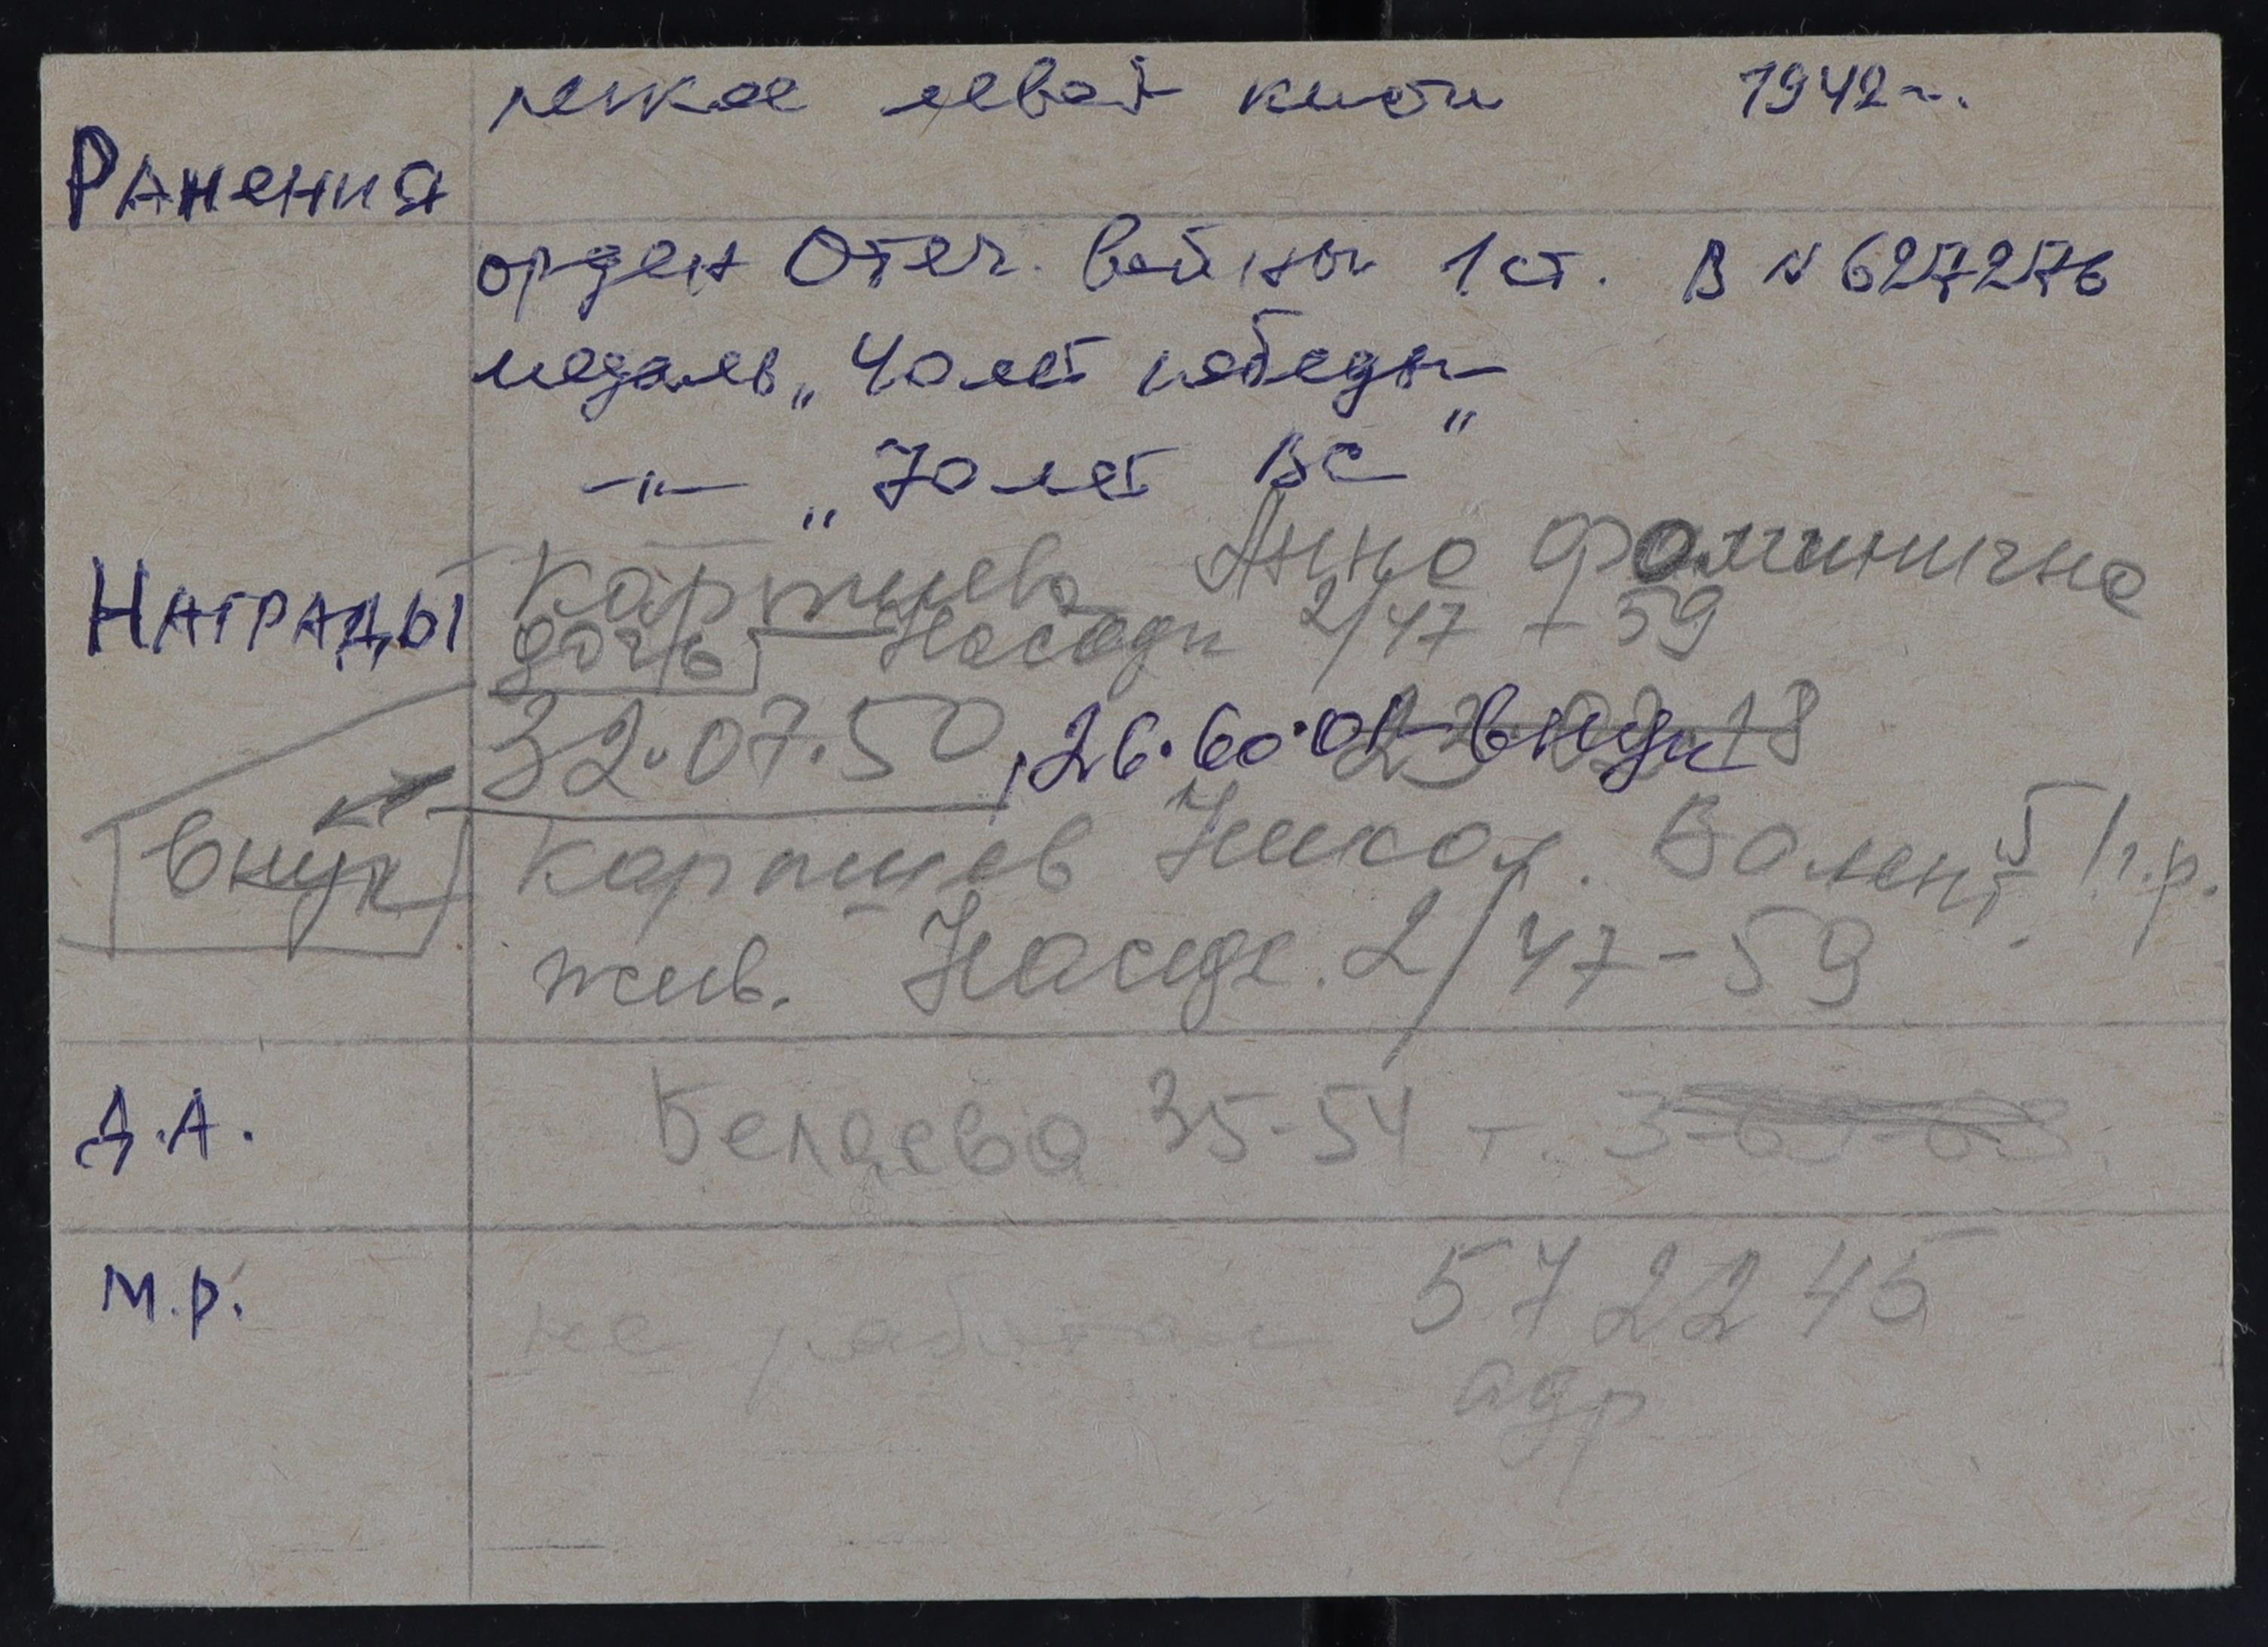 легкое левой кисти 1942 г.
Ранения
орден Отеч. Войны 1 ст. В № 627276
медаль „40 лет победы"
-"- „70 лет ВС"
Награды
Картшева Анна Фоминична
дочь Насоди 2/47 - 59
32.07.50, 26.60.01 внук
внук
Картшев Никол. Валент. 5/г.р.
жив. 2/47-59
Д.А.
Беляева 35-54 т. 3-69-63
М.р.
не работает 572245
адр